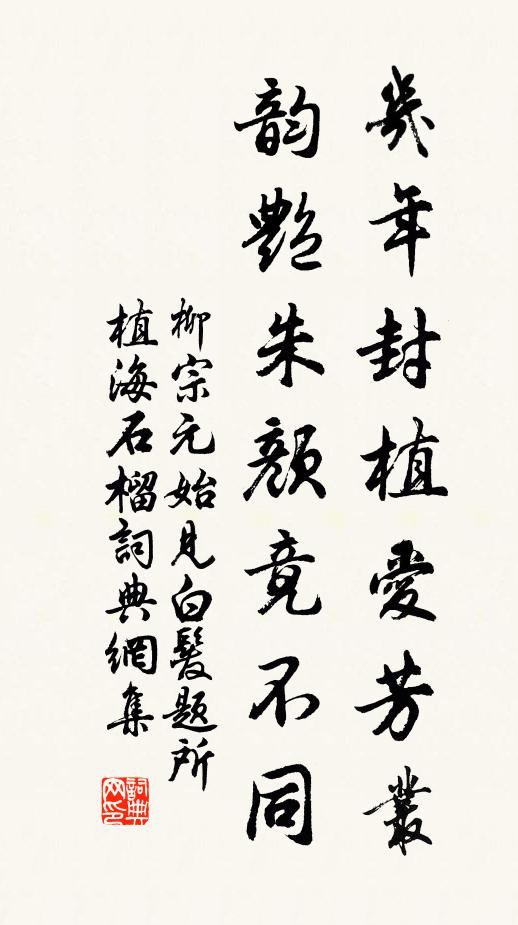 幾年封植愛芳叢
韵艷朱顔竟不同
柳宗元始見白髮題所
植海石榴詞典網集
詞典
网印